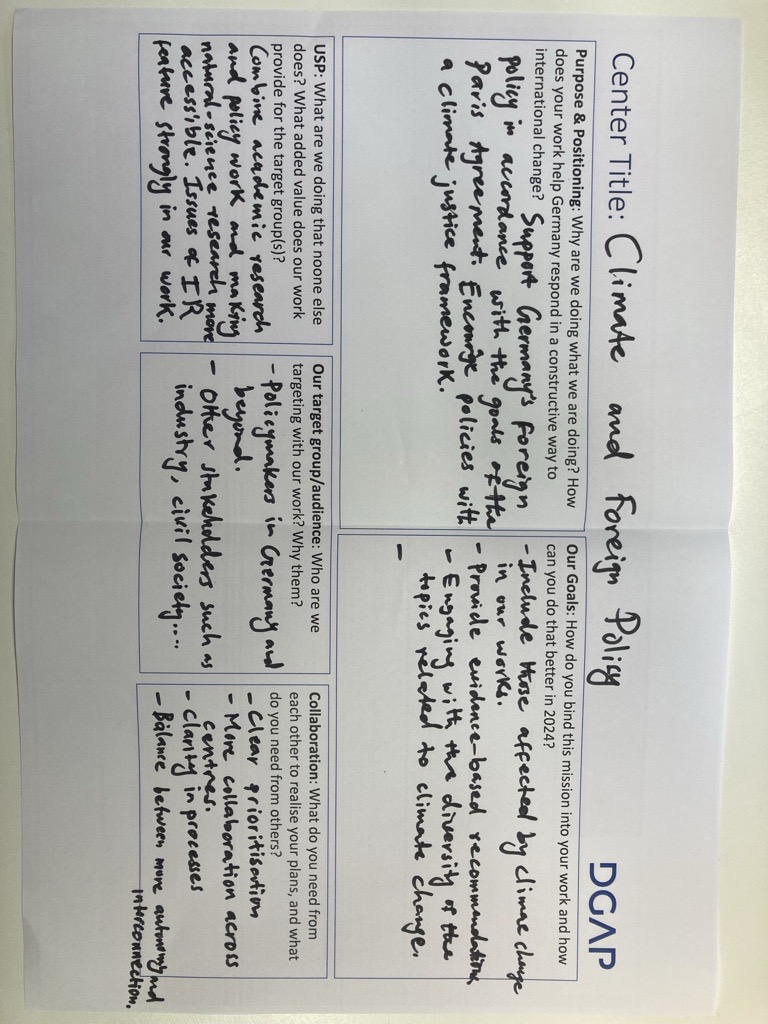 Center Title: Climate and Foreign Policy
DGAP
Purpose & Positioning: Why are we doing what we are doing? How
does your work help Germany respond in a constructive way to
international change? Support Germany's foreign
policy in accordance with the goals of the
Paris Agreement. Encourage policies with
a climate justice framework.
Our Goals: How do you bind this mission into your work and how
can you do that better in 2024?
- Include those affected by climae change
in our works.
- Provide evidence-based recommendations
- Engaging with the diversity of the
topics related to climate change.
-
USP: What are we doing that noone else
does? What added value does our work
provide for the target group(s)?
Combine academic research
and policy work and making
natural-science research more
accessible. Issues of IR
feature strongly in our work.
Our target group/audience: Who are we
targeting with our work? Why them?
- Policymakers in Germany and
beyond.
- Other stakeholders such as
industry, civil society....
Collaboration: What do you need from
each other to realise your plans, and what
do you need from others?
- Clear prioritisation
- More collaboration across
centres.
- Clarity in processes
- Balance between more autonomy and
interconnection.